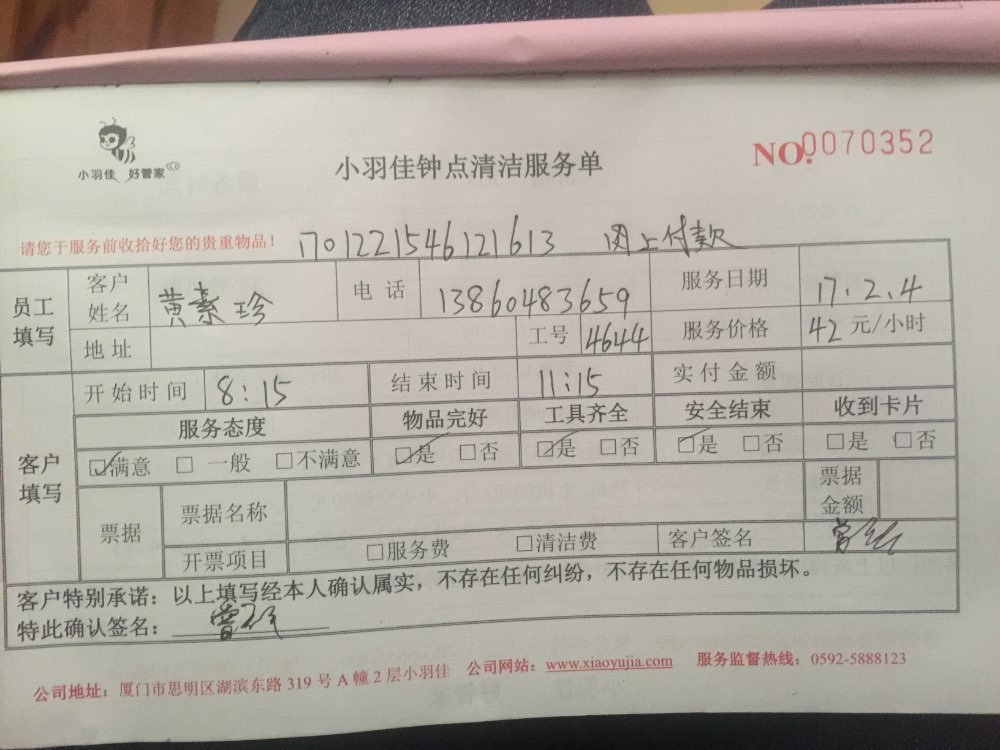 小羽佳 好管家
小羽佳钟点清洁服务单
NO.0070352
请您于服务前收拾好您的贵重物品！ 1701221546121613 网上付款
员工填写 客户姓名 黄素珍 电话 13860483659 服务日期 17.2.4
地址 工号 4644 服务价格 42 元/小时
客户填写 开始时间 8:15 结束时间 11:15 实付金额
服务态度 物品完好 工具齐全 安全结束 收到卡片
☑满意 □ 一般 □不满意 ☑是 □否 ☑是 □否 ☑是 □否 □是 □否
票据 票据名称 票据金额
开票项目 □服务费 □清洁费 客户签名
客户特别承诺：以上填写经本人确认属实，不存在任何纠纷，不存在任何物品损坏。
特此确认签名：
公司地址：厦门市思明区湖滨东路 319 号 A 幢 2 层小羽佳 公司网站：www.xiaoyujia.com 服务监督热线：0592-5888123